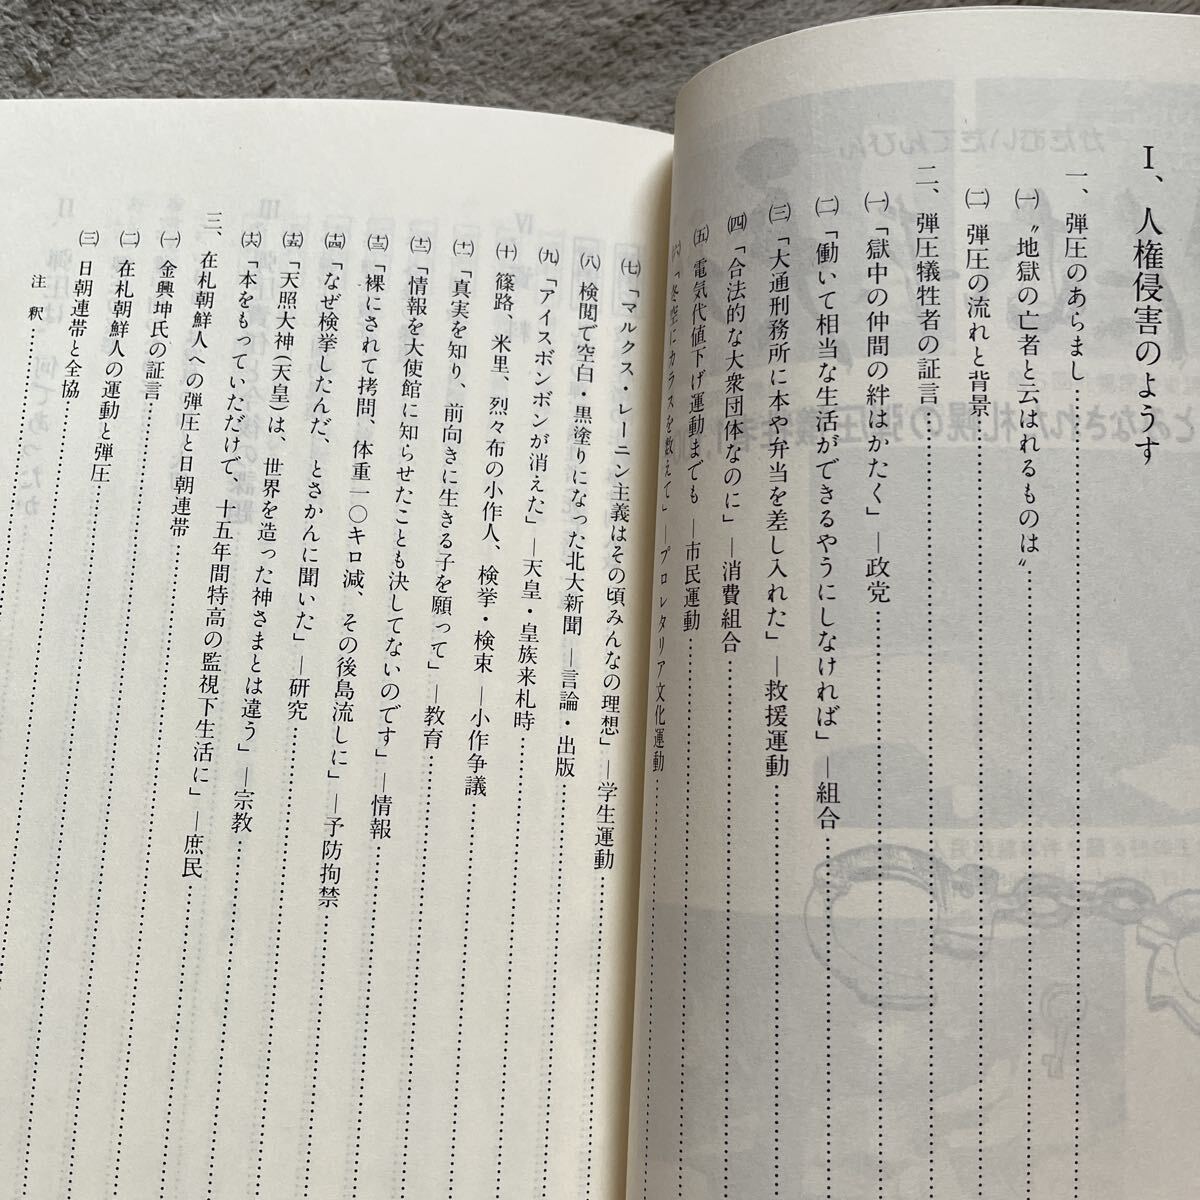 Ⅰ、人権侵害のようす
一、弾圧のあらまし
㈠ 〝地獄の亡者と云はれるものは〟
㈡ 弾圧の流れと背景
二、弾圧犠牲者の証言
㈠ 「獄中の仲間の絆はかたく」―政党
㈡ 「働いて相当な生活ができるやうにしなければ」―組合
㈢ 「大通刑務所に本や弁当を差し入れた」―救援運動
㈣ 「合法的な大衆団体なのに」―消費組合
㈤ 電気代値下げ運動までも―市民運動
㈥ 「冬空にカラスを数えて」―プロレタリア文化運動
㈦ 「マルクス・レーニン主義はその頃みんなの理想」―学生運動
㈧ 検閲で空白・黒塗りになった北大新聞―言論・出版
㈨ 「アイスボンボンが消えた」―天皇・皇族来札時
㈩ 篠路、米里、烈々布の小作人、検挙・検束―小作争議
(十一) 「真実を知り、前向きに生きる子を願って」―教育
(十二) 「情報を大使館に知らせたことも決してないのです」―情報
(十三) 「裸にされて拷問、体重一〇キロ減、その後島流しに」―予防拘禁
(十四) 「なぜ検挙したんだ、とさかんに聞いた」―研究
(十五) 「天照大神(天皇)は、世界を造った神さまとは違う」―宗教
(十六) 「本をもっていただけで、十五年間特高の監視下生活に」―庶民
三、在札朝鮮人への弾圧と日朝連帯
㈠ 金興坤氏の証言
㈡ 在札朝鮮人の運動と弾圧
㈢ 日朝連帯と全協
注釈